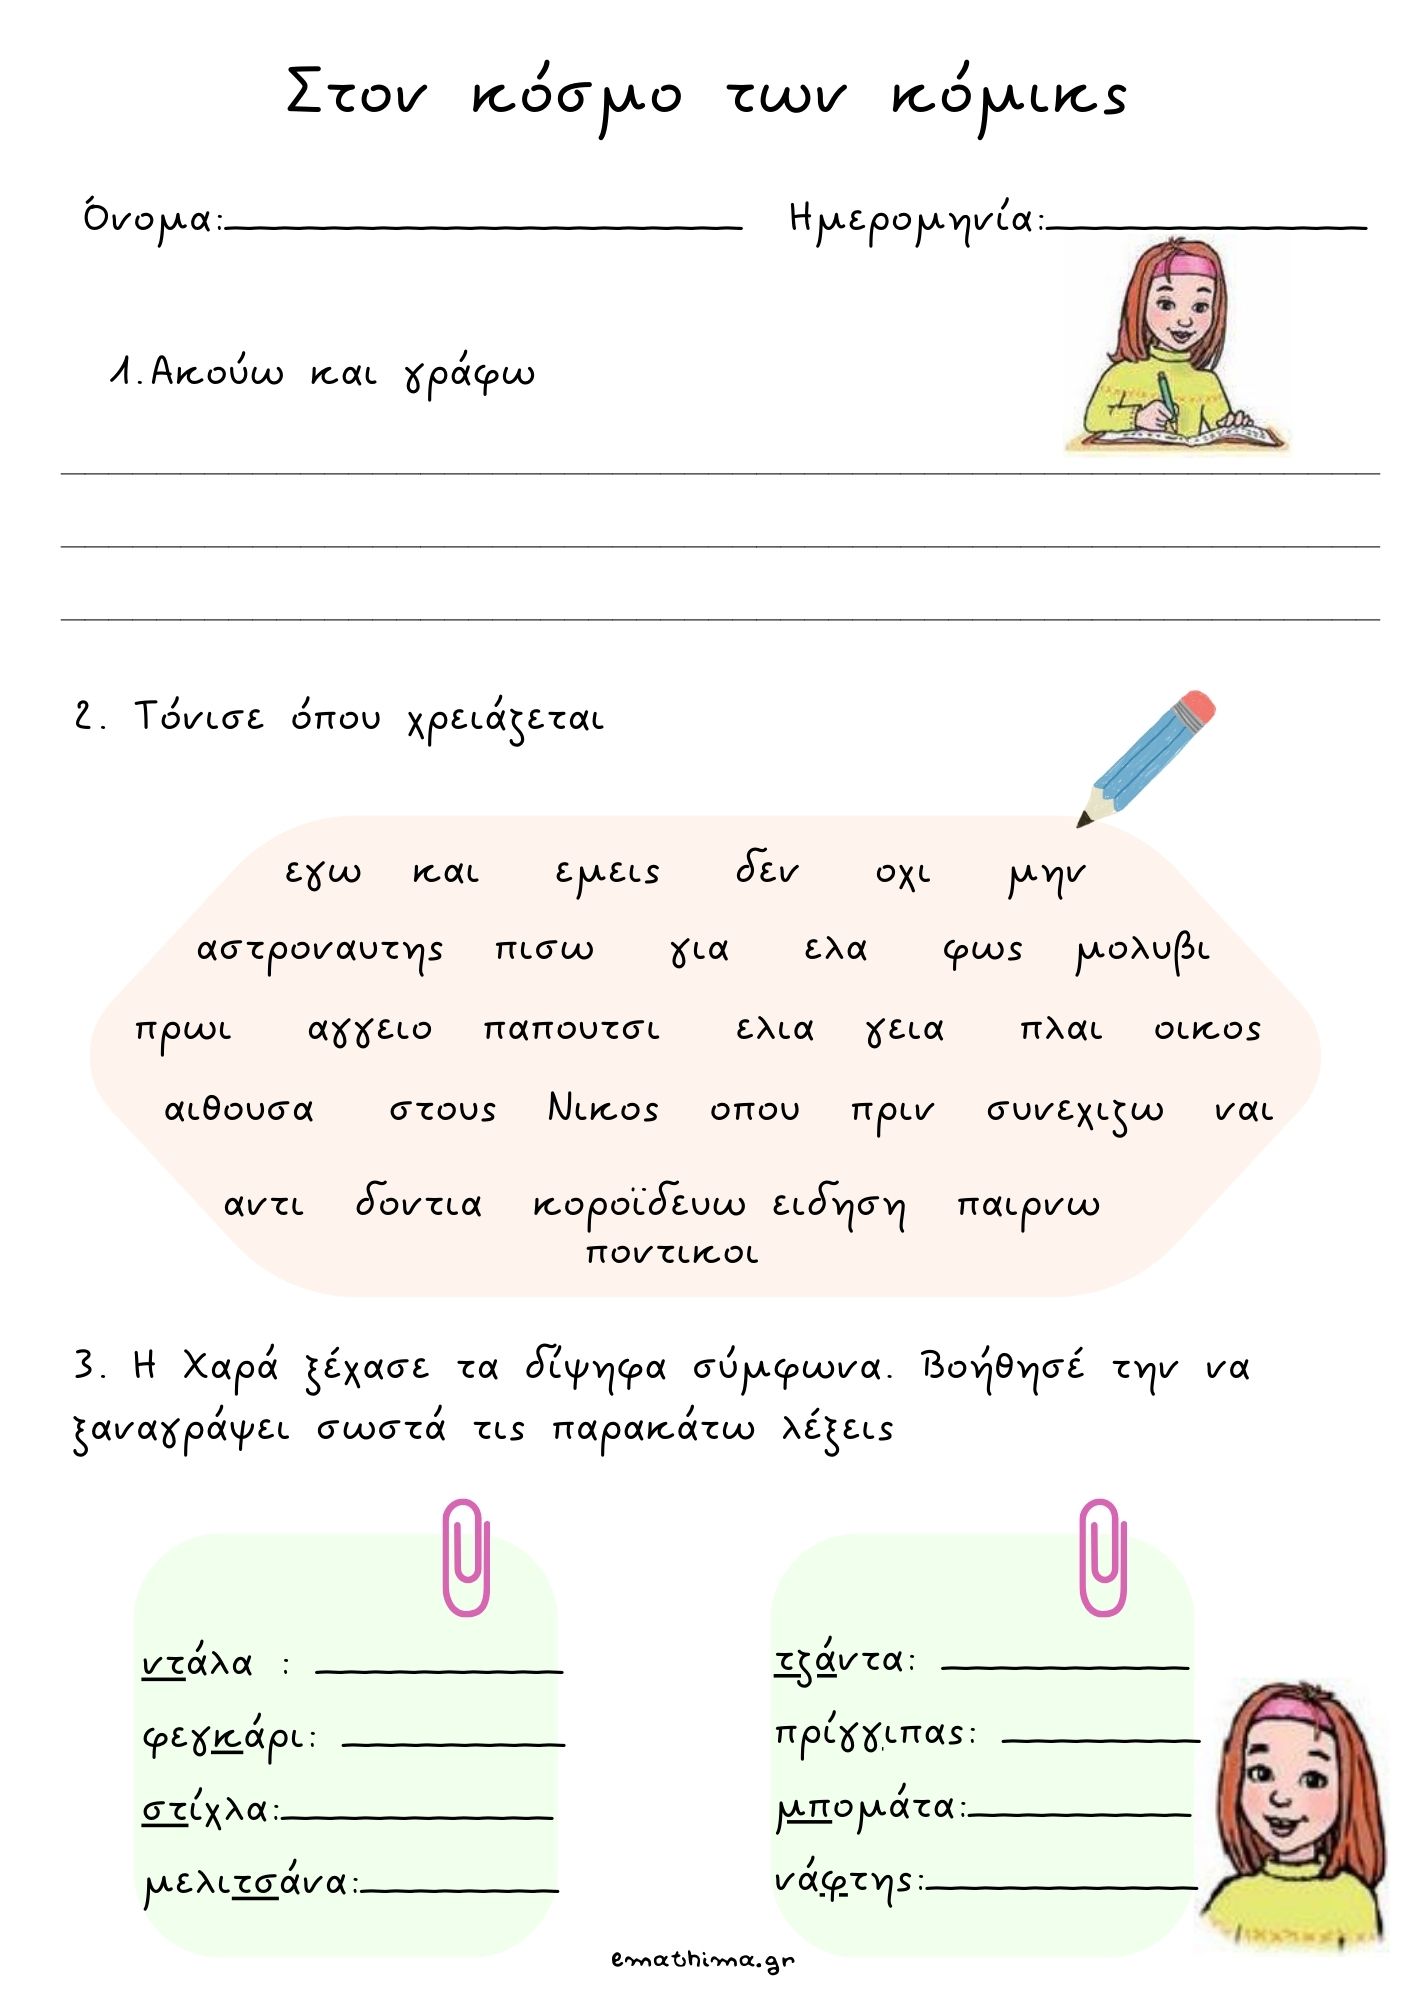 Στον κόσμο των κόμικς
Όνομα: Ημερομηνία:
1.Ακούω και γράφω
2. Τόνισε όπου χρειάζεται
εγω και εμεις δεν οχι μην
αστροναυτης πισω για ελα φως μολυβι
πρωι αγγειο παπουτσι ελια γεια πλαι οικος
αιθουσα στους Νικος οπου πριν συνεχιζω ναι
αντι δοντια κοροϊδευω ειδηση παιρνω
ποντικοι
3. Η Χαρά ξέχασε τα δίψηφα σύμφωνα. Βοήθησέ την να
ξαναγράψει σωστά τις παρακάτω λέξεις
ντάλα :
φεγκάρι:
στίχλα:
μελιτσάνα:
τζάντα:
πρίγγιπας:
μπομάτα:
νάφτης:
emathima.gr